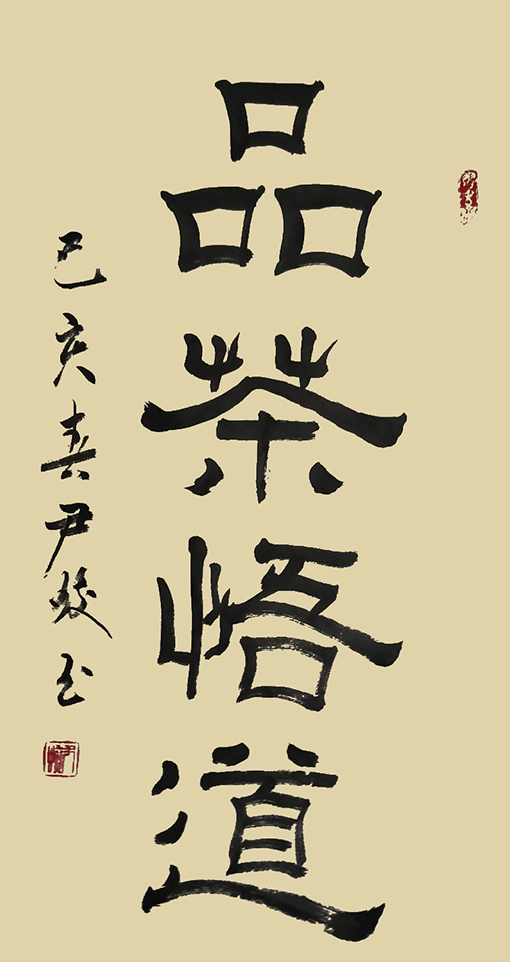 品茶悟道
己亥春尹玉